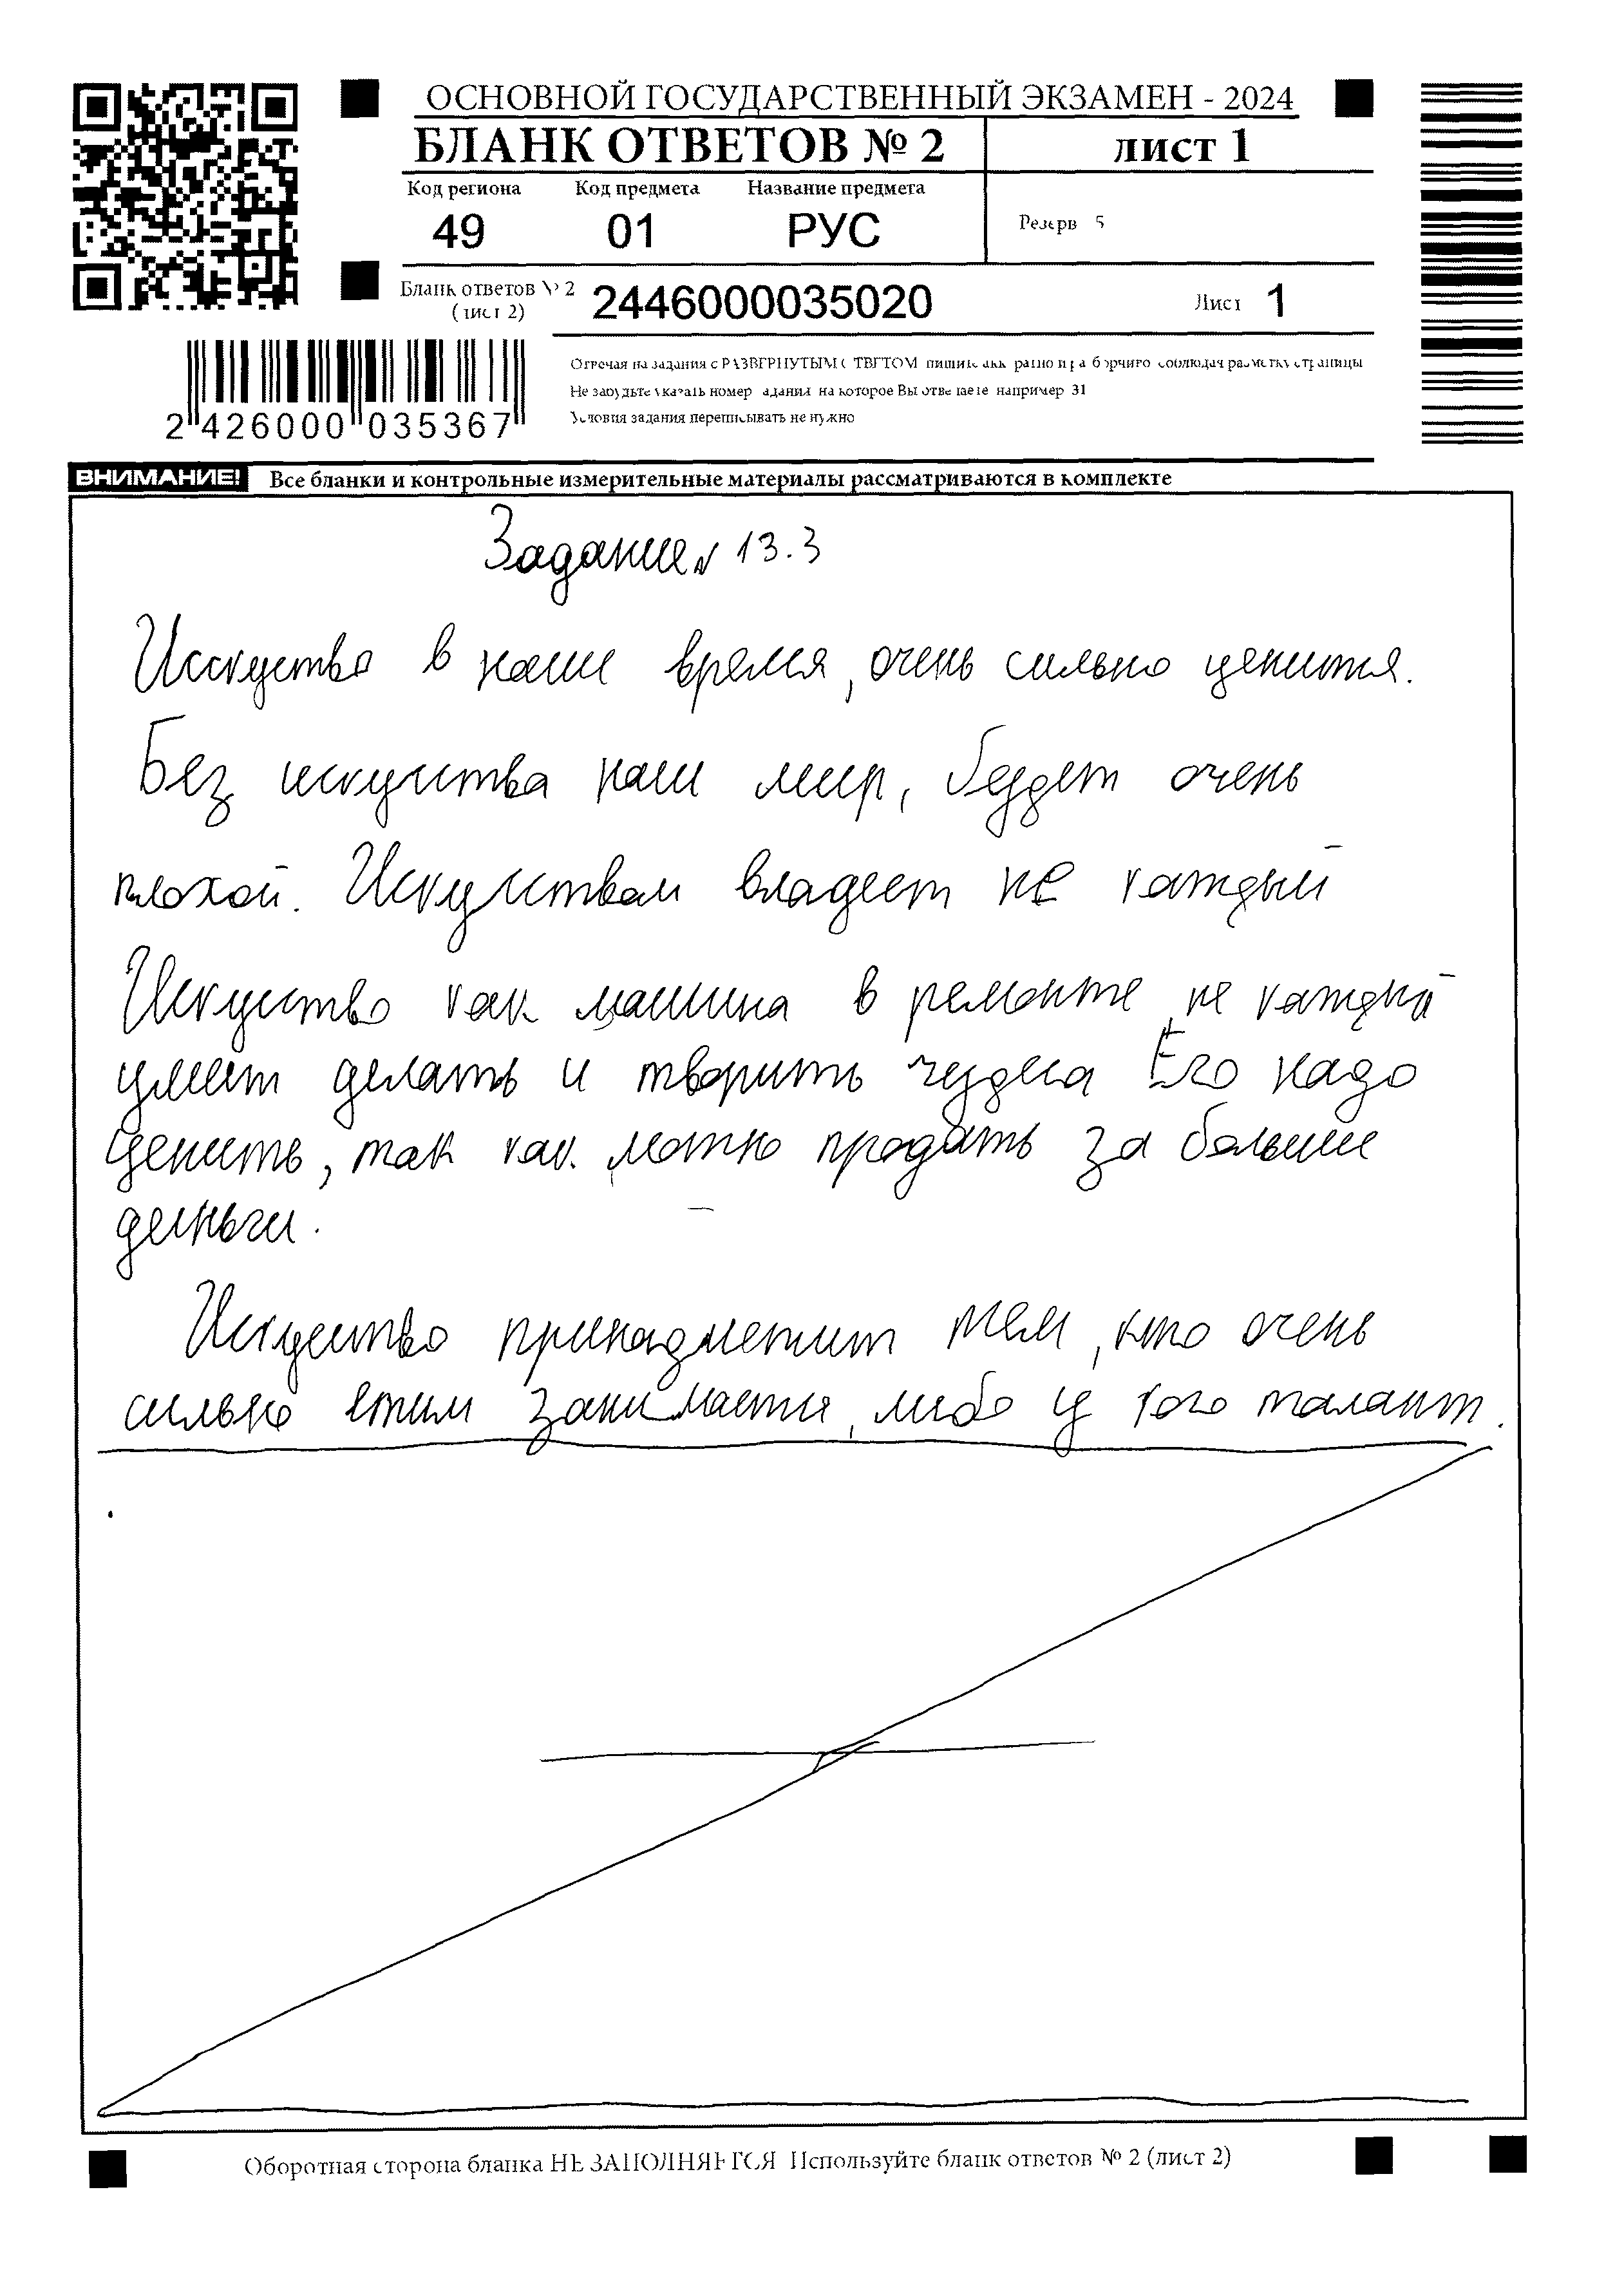 ОСНОВНОЙ ГОСУДАРСТВЕННЫЙ ЭКЗАМЕН - 2024
БЛАНК ОТВЕТОВ № 2
лист 1
Код региона Код предмета Название предмета
49 01 РУС
Резерв 5
Бланк ответов № 2 (лист 2) 2446000035020
Лист 1
2 426000 035367
Отвечая на задания с РАЗВЕРНУТЫМ ОТВЕТОМ пишите аккуратно и разборчиво соблюдая разметку страницы
Не забудьте указать номер задания на которое Вы отвечаете например 31
Условия задания переписывать не нужно
ВНИМАНИЕ! Все бланки и контрольные измерительные материалы рассматриваются в комплекте
Задание № 13.3
Исскуство в наше время, очень сильно ценится.
Без искуства наш мир, будет очень
плохой. Искуством владеет не каждый
Искуство как машина в ремонте, не каждый
умеет делать и творить чудеса Его надо
ценить, так как можно продать за больше
деньги.
Искуство принадлежит тем, кто очень
сильно етим занимается, либо у кого талант.
Оборотная сторона бланка НЕ ЗАПОЛНЯЕТСЯ Используйте бланк ответов № 2 (лист 2)